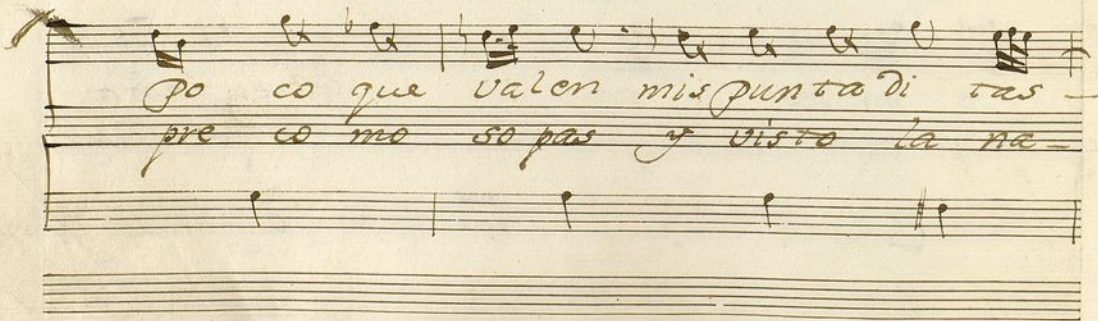 po co que valen mis punta di tas -
pre co mo so pas y visto la na -